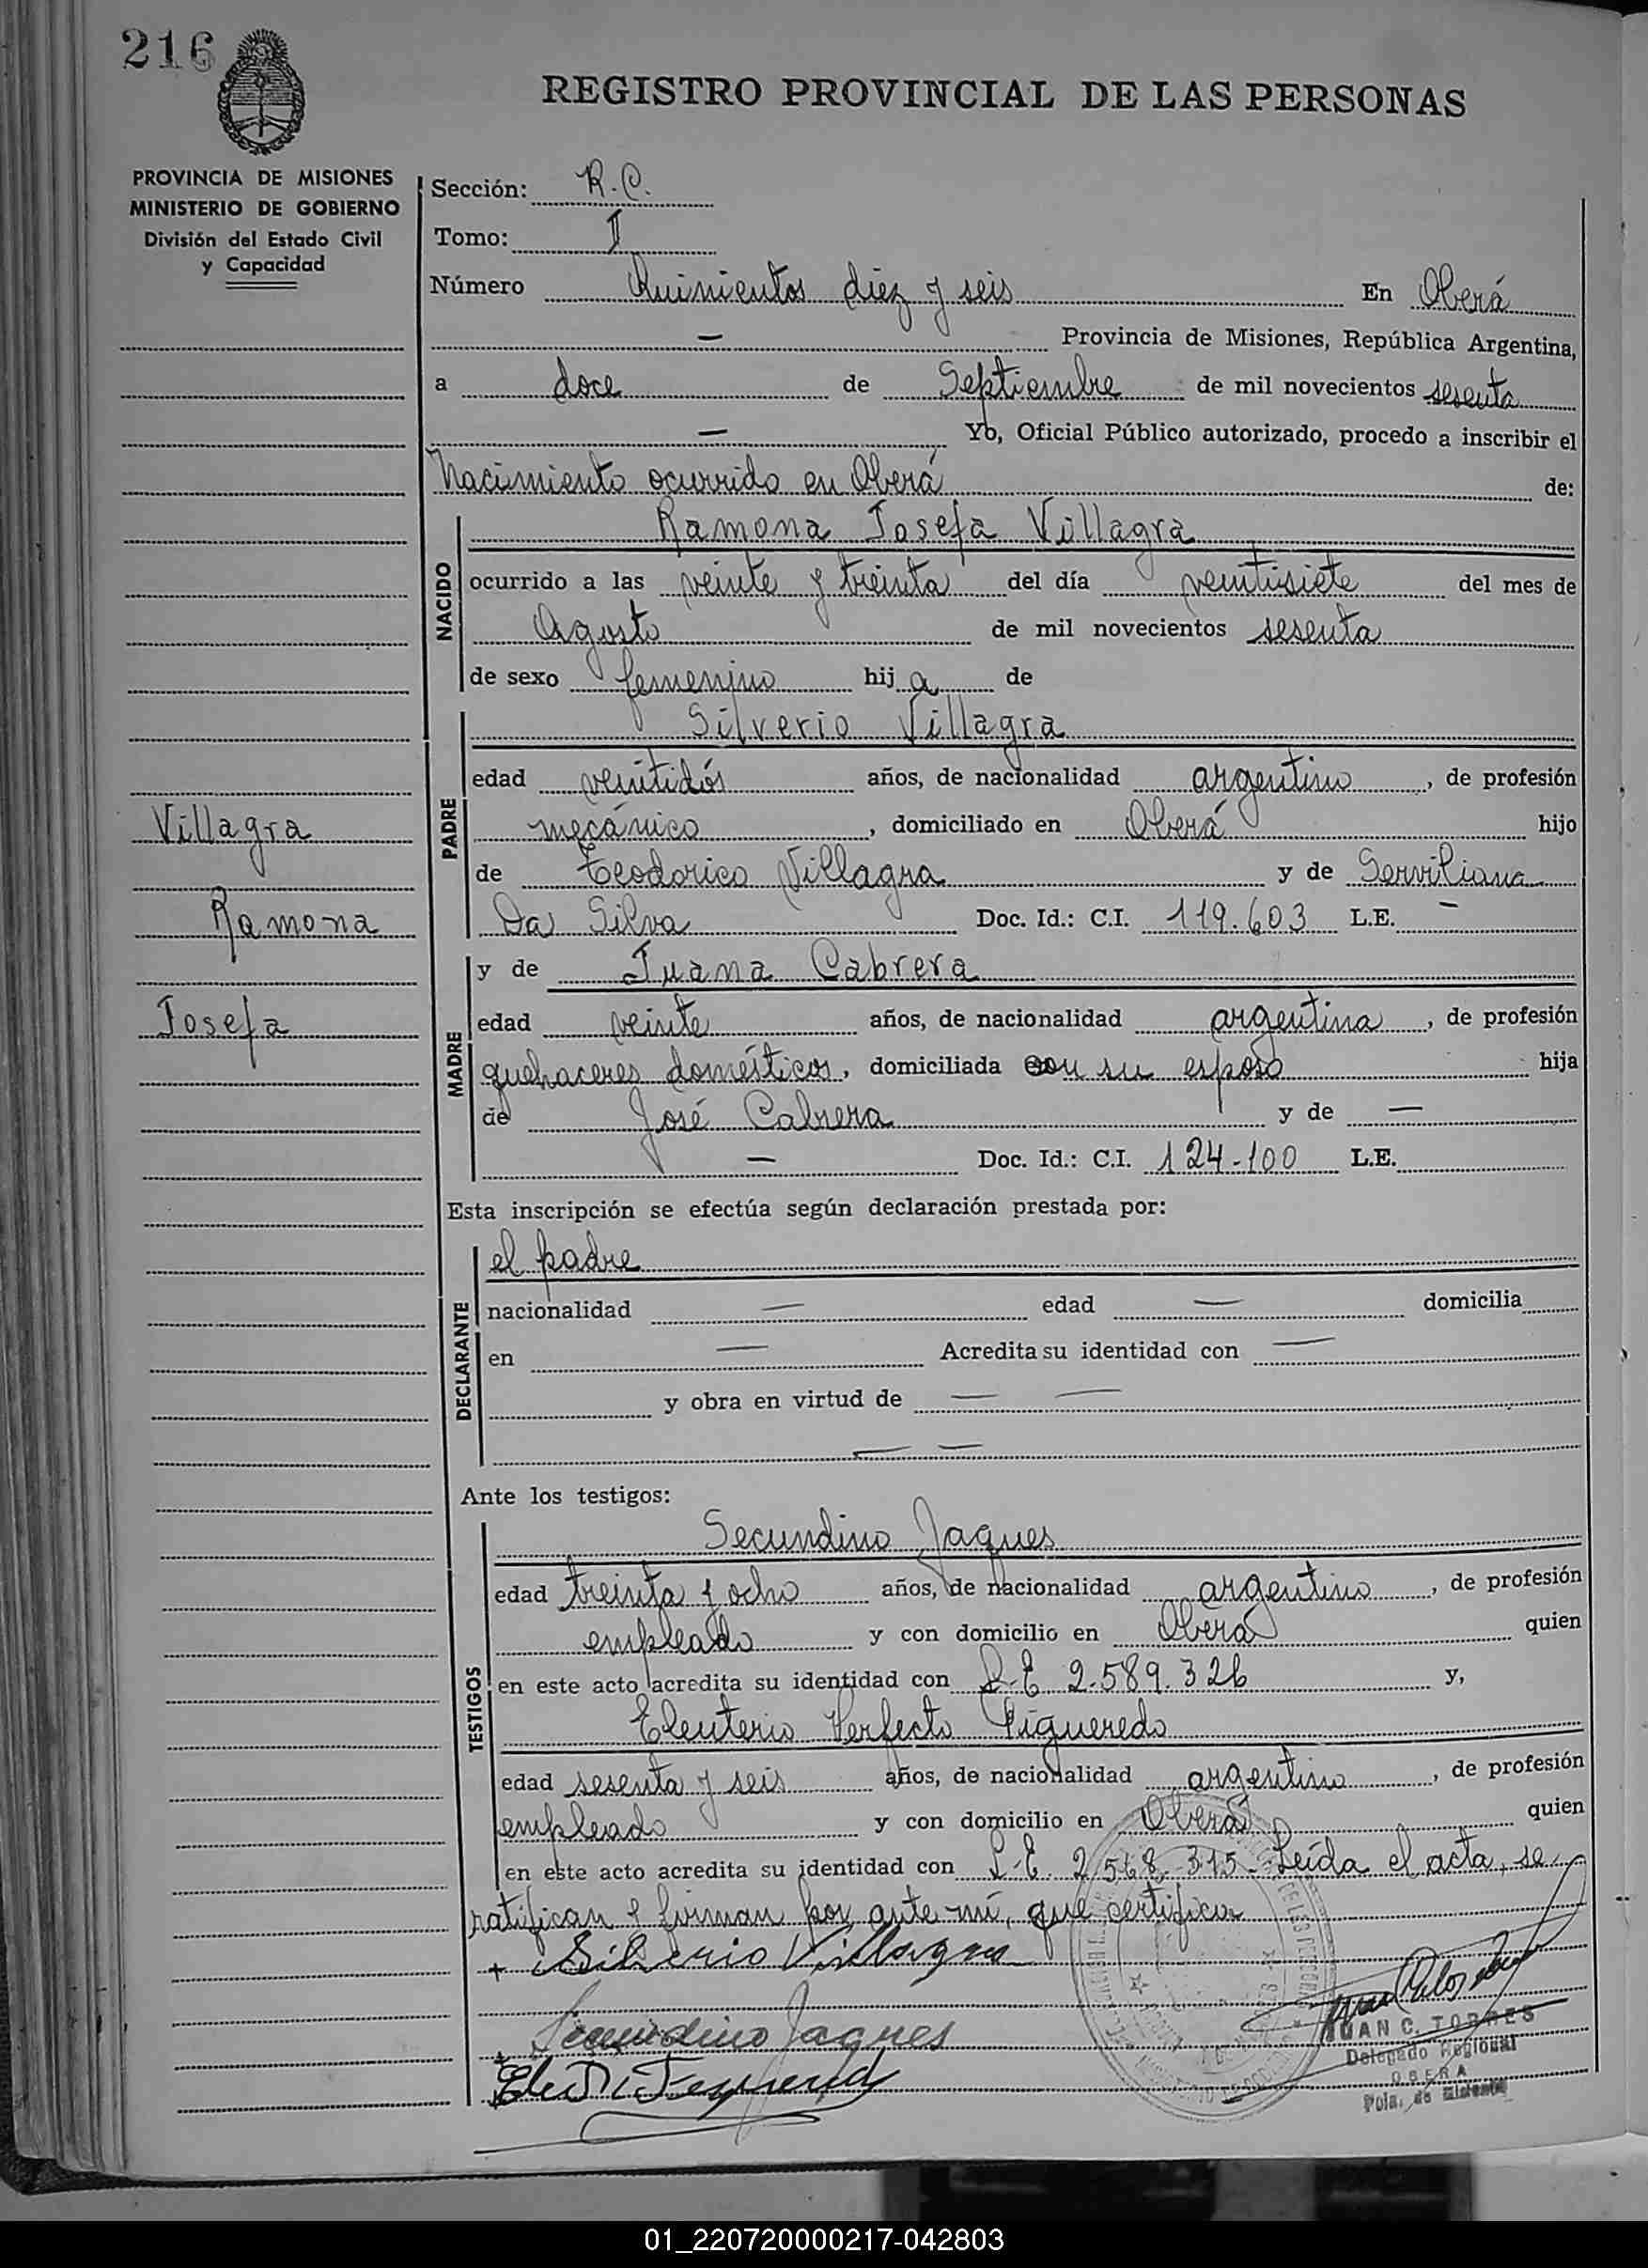 216
REGISTRO PROVINCIAL DE LAS PERSONAS
PROVINCIA DE MISIONES
MINISTERIO DE GOBIERNO
División del Estado Civil
y Capacidad
Sección: R.C.
Tomo: I
Número Quinientos diez y seis En Oberá
— Provincia de Misiones, República Argentina,
a doce de Septiembre de mil novecientos sesenta
— Yo, Oficial Público autorizado, procedo a inscribir el
Nacimiento ocurrido en Oberá de:
NACIDO
Ramona Josefa Villagra
ocurrido a las veinte y treinta del día veintisiete del mes de
Agosto de mil novecientos sesenta
de sexo femenino hij a de
PADRE
Silverio Villagra
edad veintidós años, de nacionalidad argentino, de profesión
mecánico, domiciliado en Oberá hijo
de Teodorico Villagra y de Serviliana
Da Silva Doc. Id.: C.I. 119.603 L.E. —
Villagra
Ramona
Josefa
MADRE
y de Juana Cabrera
edad veinte años, de nacionalidad argentina, de profesión
quehaceres domésticos, domiciliada con su esposo hija
de José Cabrera y de —
— Doc. Id.: C.I. 124-100 L.E.
Esta inscripción se efectúa según declaración prestada por:
DECLARANTE
el padre
nacionalidad — edad — domicilia
en — Acredita su identidad con —
y obra en virtud de — —
— —
Ante los testigos:
TESTIGOS
Secundino Jaques
edad treinta y ocho años, de nacionalidad argentino, de profesión
empleado y con domicilio en Oberá quien
en este acto acredita su identidad con L.E 2.589.326 y,
Eleuterio Perfecto Figueredo
edad sesenta y seis años, de nacionalidad argentino, de profesión
empleado y con domicilio en Oberá quien
en este acto acredita su identidad con L.E. 2.568.315. Leída el acta, se
ratifican y firman por ante mí, que certifico
+ Silverio Villagra
Secundino Jaques
JUAN C. TORRES
Delegado Regional
OBERA
Pcia. de Misiones
01_220720000217-042803